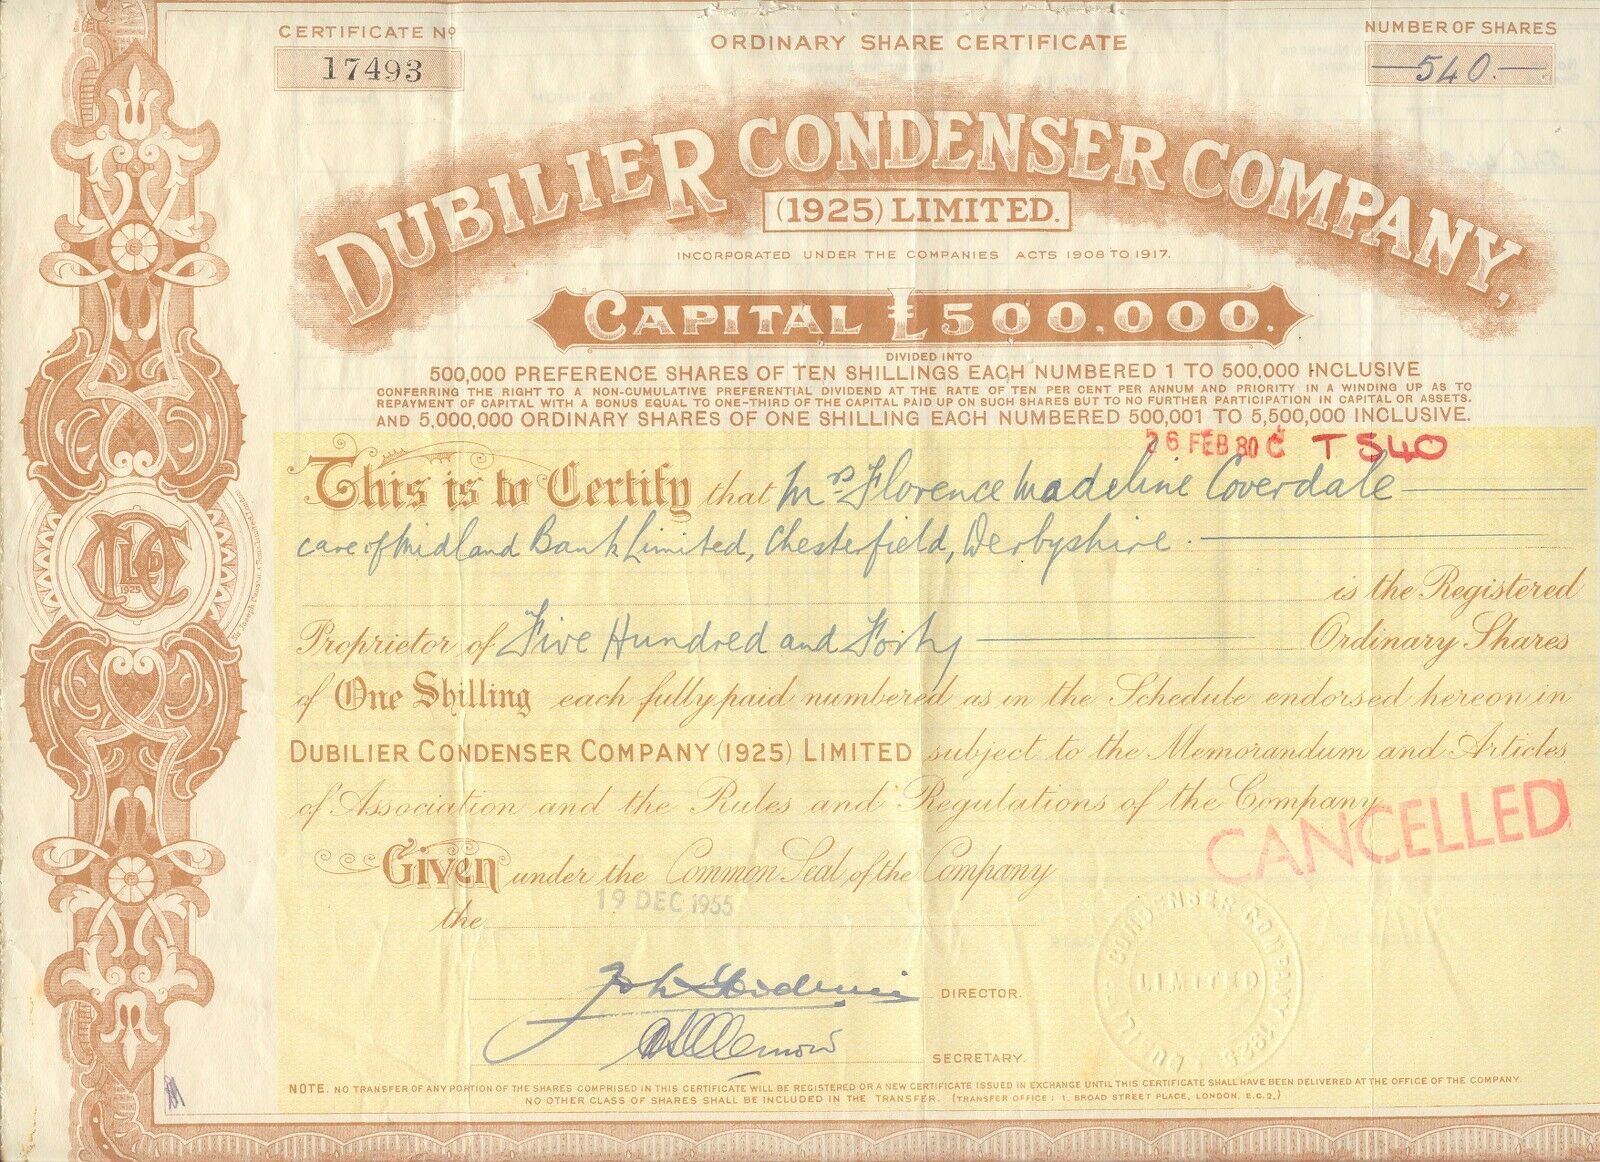 CERTIFICATE Nº
17493
ORDINARY SHARE CERTIFICATE
NUMBER OF SHARES
540.
DUBILIER CONDENSER COMPANY,
(1925) LIMITED.
INCORPORATED UNDER THE COMPANIES ACTS 1908 TO 1917.
CAPITAL £500,000.
DIVIDED INTO
500,000 PREFERENCE SHARES OF TEN SHILLINGS EACH NUMBERED 1 TO 500,000 INCLUSIVE
CONFERRING THE RIGHT TO A NON-CUMULATIVE PREFERENTIAL DIVIDEND AT THE RATE OF TEN PER CENT PER ANNUM AND PRIORITY IN A WINDING UP AS TO
REPAYMENT OF CAPITAL WITH A BONUS EQUAL TO ONE-THIRD OF THE CAPITAL PAID UP ON SUCH SHARES BUT TO NO FURTHER PARTICIPATION IN CAPITAL OR ASSETS.
AND 5,000,000 ORDINARY SHARES OF ONE SHILLING EACH NUMBERED 500,001 TO 5,500,000 INCLUSIVE.
26 FEB 80 C T 540
This is to Certify that Mrs Florence Madeline Coverdale
care of Midland Bank Limited, Chesterfield, Derbyshire.
is the Registered
Proprietor of Five Hundred and Forty Ordinary Shares
of One Shilling each fully paid numbered as in the Schedule endorsed hereon in
DUBILIER CONDENSER COMPANY (1925) LIMITED subject to the Memorandum and Articles
of Association and the Rules and Regulations of the Company
CANCELLED
Given under the Common Seal of the Company
the 19 DEC 1955
DIRECTOR.
SECRETARY.
DUBILIER CONDENSER COMPANY 1925
LIMITED
1925
NOTE. NO TRANSFER OF ANY PORTION OF THE SHARES COMPRISED IN THIS CERTIFICATE WILL BE REGISTERED OR A NEW CERTIFICATE ISSUED IN EXCHANGE UNTIL THIS CERTIFICATE SHALL HAVE BEEN DELIVERED AT THE OFFICE OF THE COMPANY.
NO OTHER CLASS OF SHARES SHALL BE INCLUDED IN THE TRANSFER. (TRANSFER OFFICE: 1, BROAD STREET PLACE, LONDON, E.C.2.)